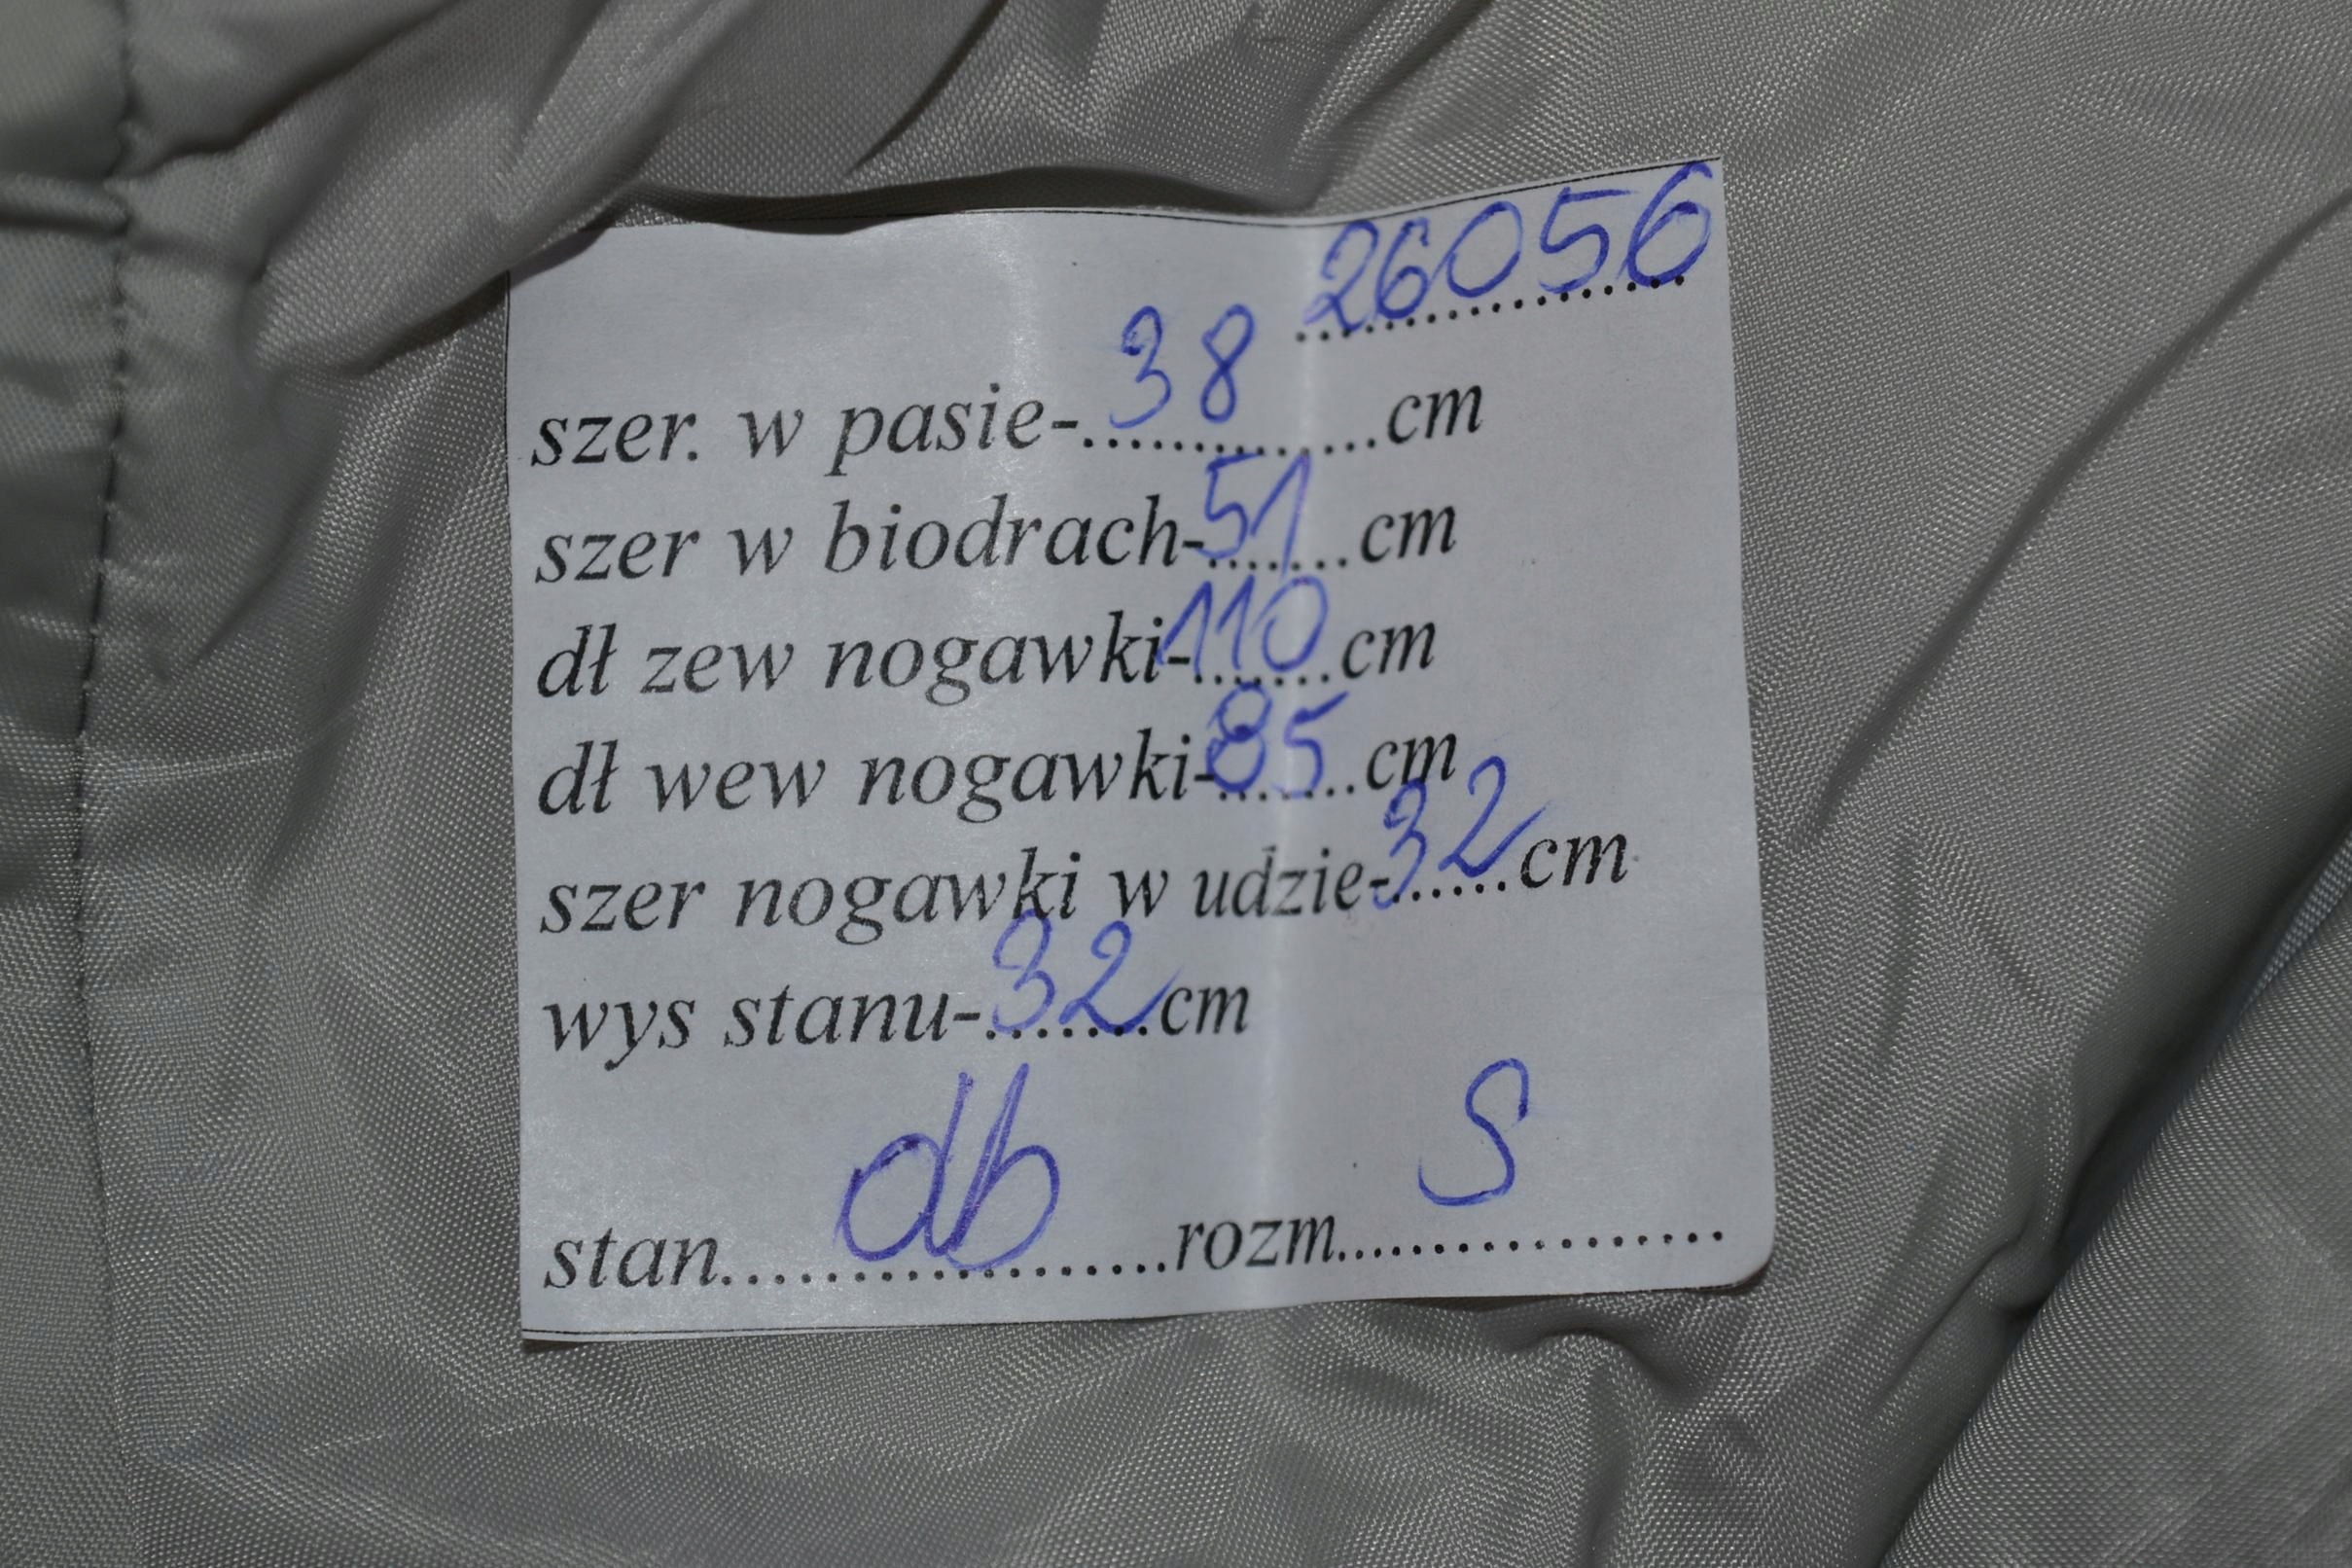 26056
szer. w pasie-38cm
szer w biodrach-51cm
dł zew nogawki-110cm
dł wew nogawki-85cm
szer nogawki w udzie-32cm
wys stanu-32cm
stan db rozm S